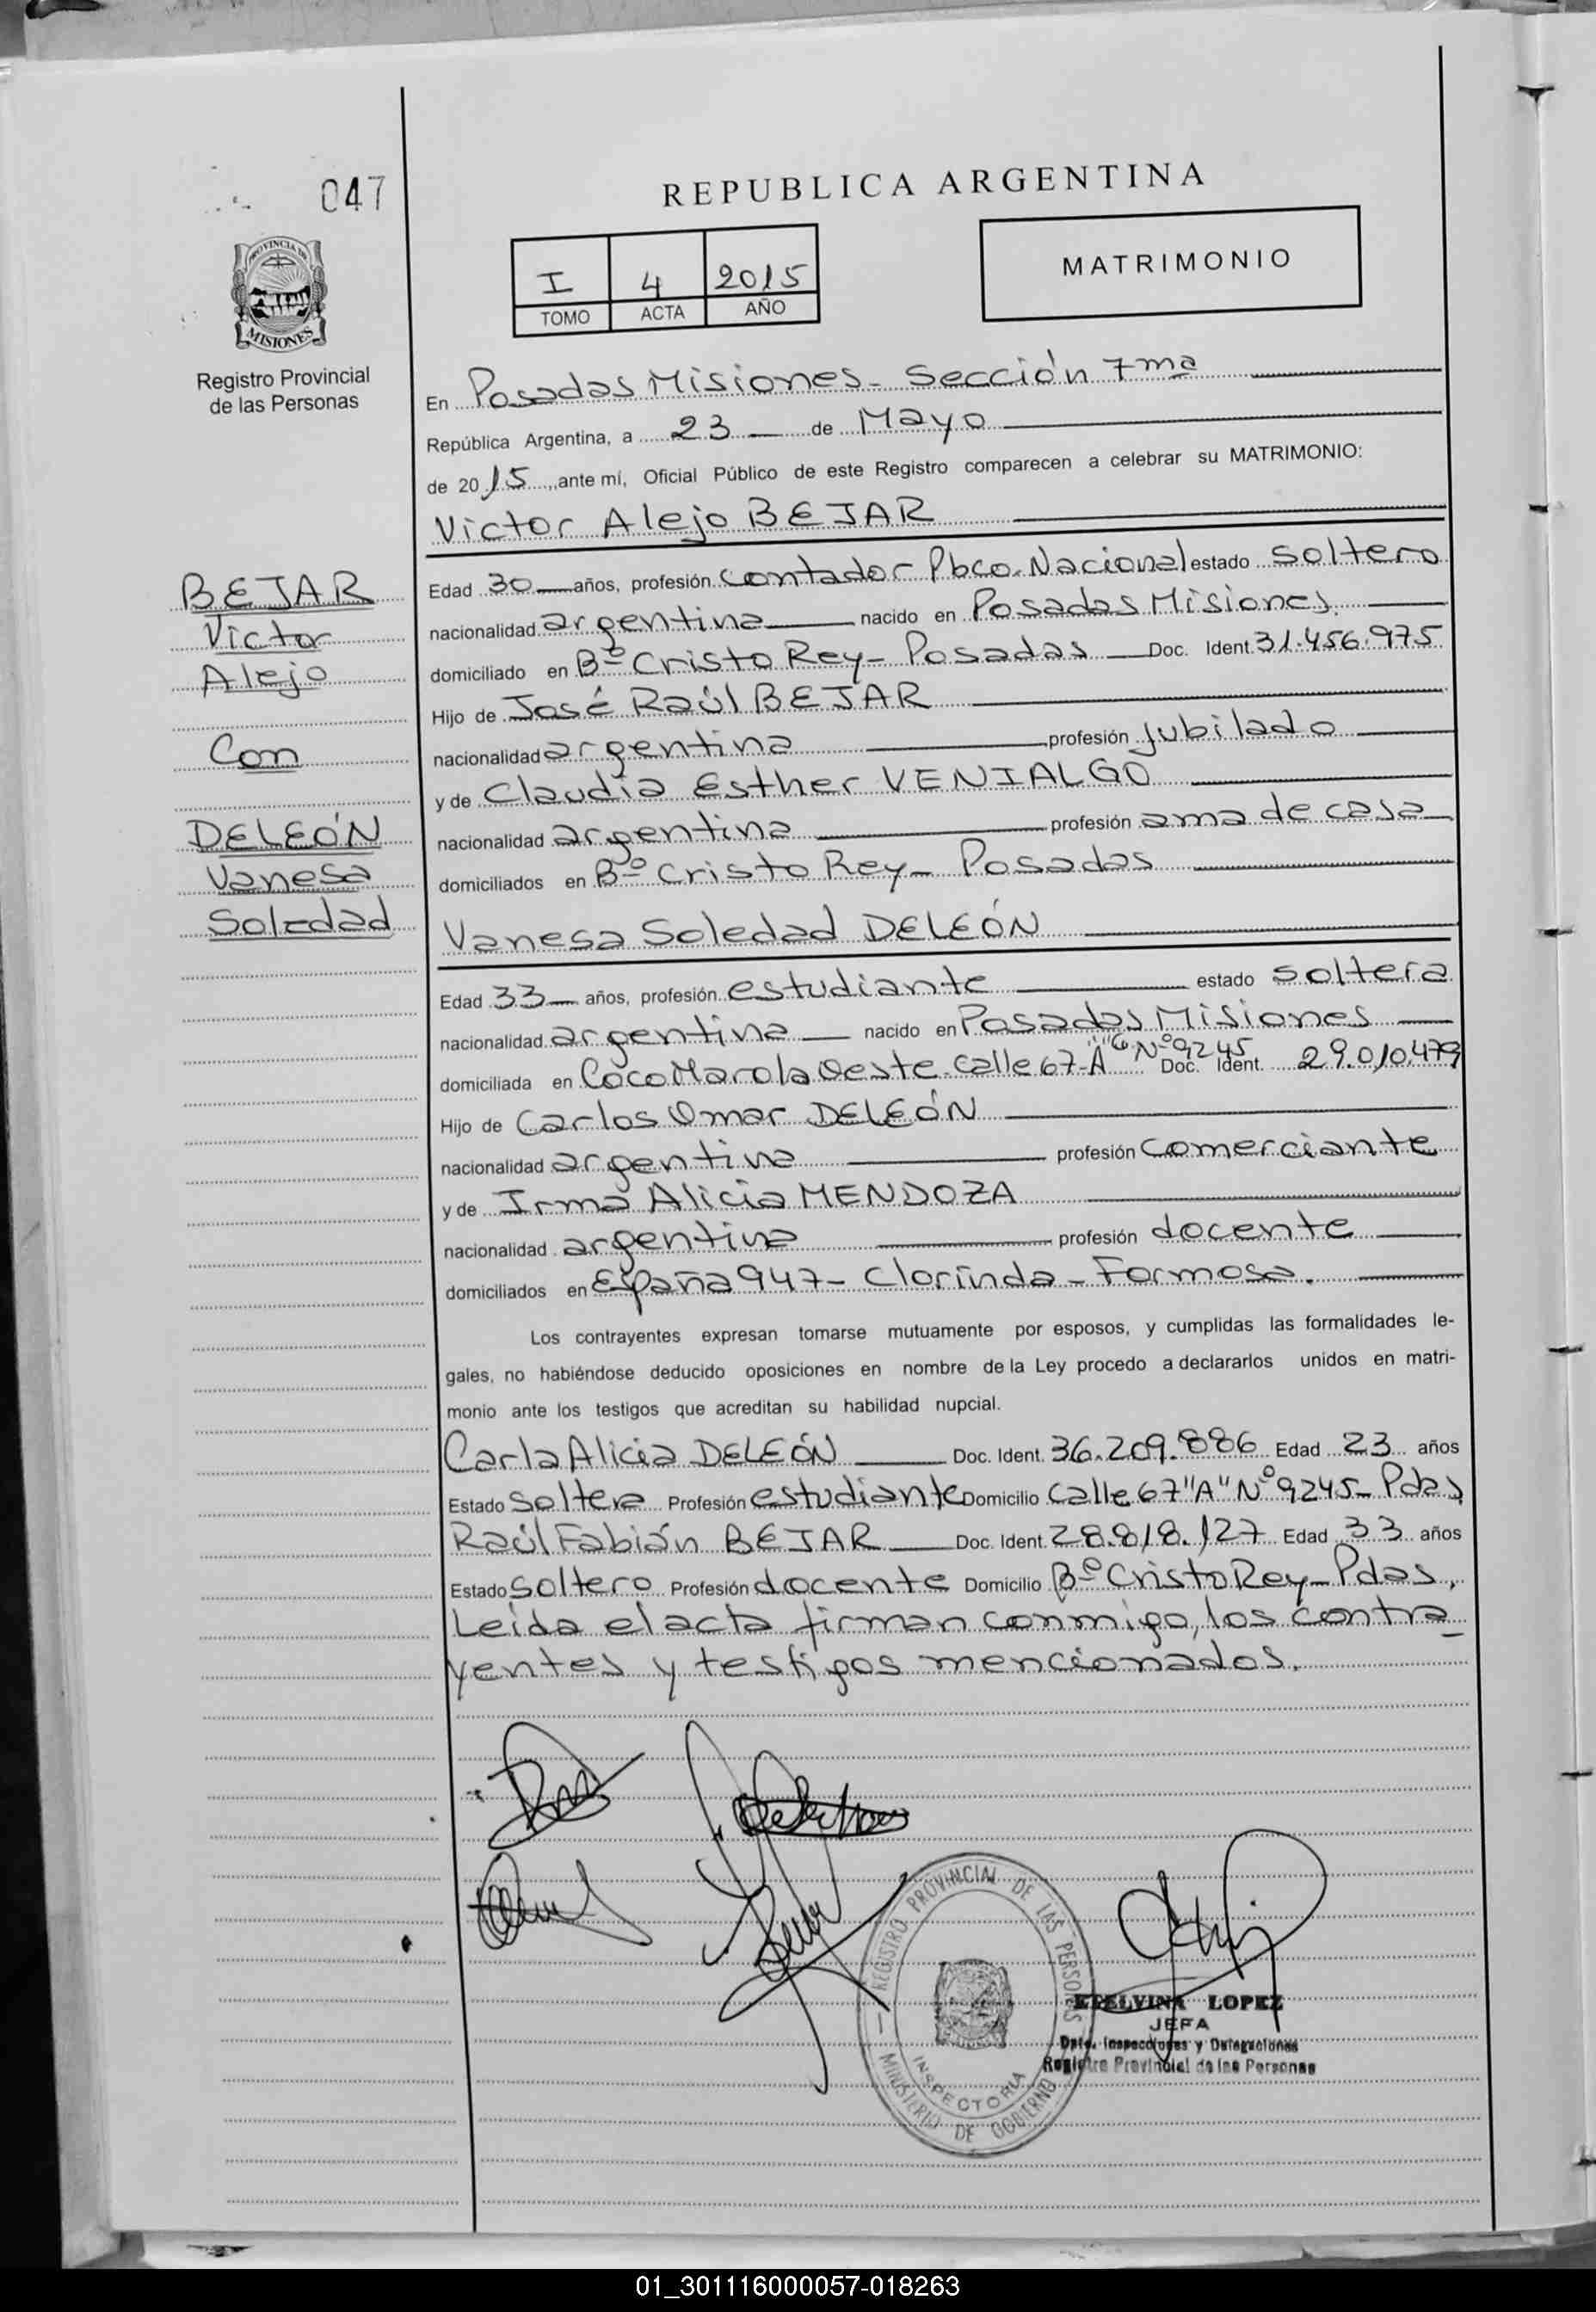 047
REPUBLICA ARGENTINA
PROVINCIA DE
MISIONES
Registro Provincial
de las Personas
I 4 2015
TOMO ACTA AÑO
MATRIMONIO
En Posadas Misiones - Sección 7ma
República Argentina, a 23 de Mayo
de 2015, ante mí, Oficial Público de este Registro comparecen a celebrar su MATRIMONIO:
Victor Alejo BEJAR
BEJAR
Victor
Alejo
Con
DELEÓN
Vanesa
Soledad
Edad 30 años, profesión Contador Pbco. Nacional estado soltero
nacionalidad argentina nacido en Posadas Misiones
domiciliado en Bº Cristo Rey - Posadas Doc. Ident. 31.456.975
Hijo de José Raúl BEJAR
nacionalidad argentina profesión jubilado
y de Claudia Esther VENIALGO
nacionalidad argentina profesión ama de casa
domiciliados en Bº Cristo Rey - Posadas
Vanesa Soledad DELEÓN
Edad 33 años, profesión estudiante estado soltera
nacionalidad argentina nacido en Posadas Misiones
domiciliada en Coco Marola Oeste calle 67 - "A" Nº 9245 Doc. Ident. 29.010.479
Hijo de Carlos Omar DELEÓN
nacionalidad argentina profesión comerciante
y de Irma Alicia MENDOZA
nacionalidad argentina profesión docente
domiciliados en España 947 - Clorinda - Formosa.
Los contrayentes expresan tomarse mutuamente por esposos, y cumplidas las formalidades le-
gales, no habiéndose deducido oposiciones en nombre de la Ley procedo a declararlos unidos en matri-
monio ante los testigos que acreditan su habilidad nupcial.
Carla Alicia DELEÓN Doc. Ident. 36.209.886 Edad 23 años
Estado soltera Profesión estudiante Domicilio calle 67 "A" Nº 9245 - Pdas
Raúl Fabián BEJAR Doc. Ident. 28.818.127 Edad 33 años
Estado soltero Profesión docente Domicilio Bº Cristo Rey - Pdas.
Leída el acta firman conmigo, los contra
yentes y testigos mencionados.
REGISTRO PROVINCIAL DE LAS PERSONAS
INSPECTORIA
MINISTERIO DE GOBIERNO
ETELVINA LOPEZ
JEFA
Dpto. Inspecciones y Delegaciones
Registro Provincial de las Personas
01_301116000057-018263